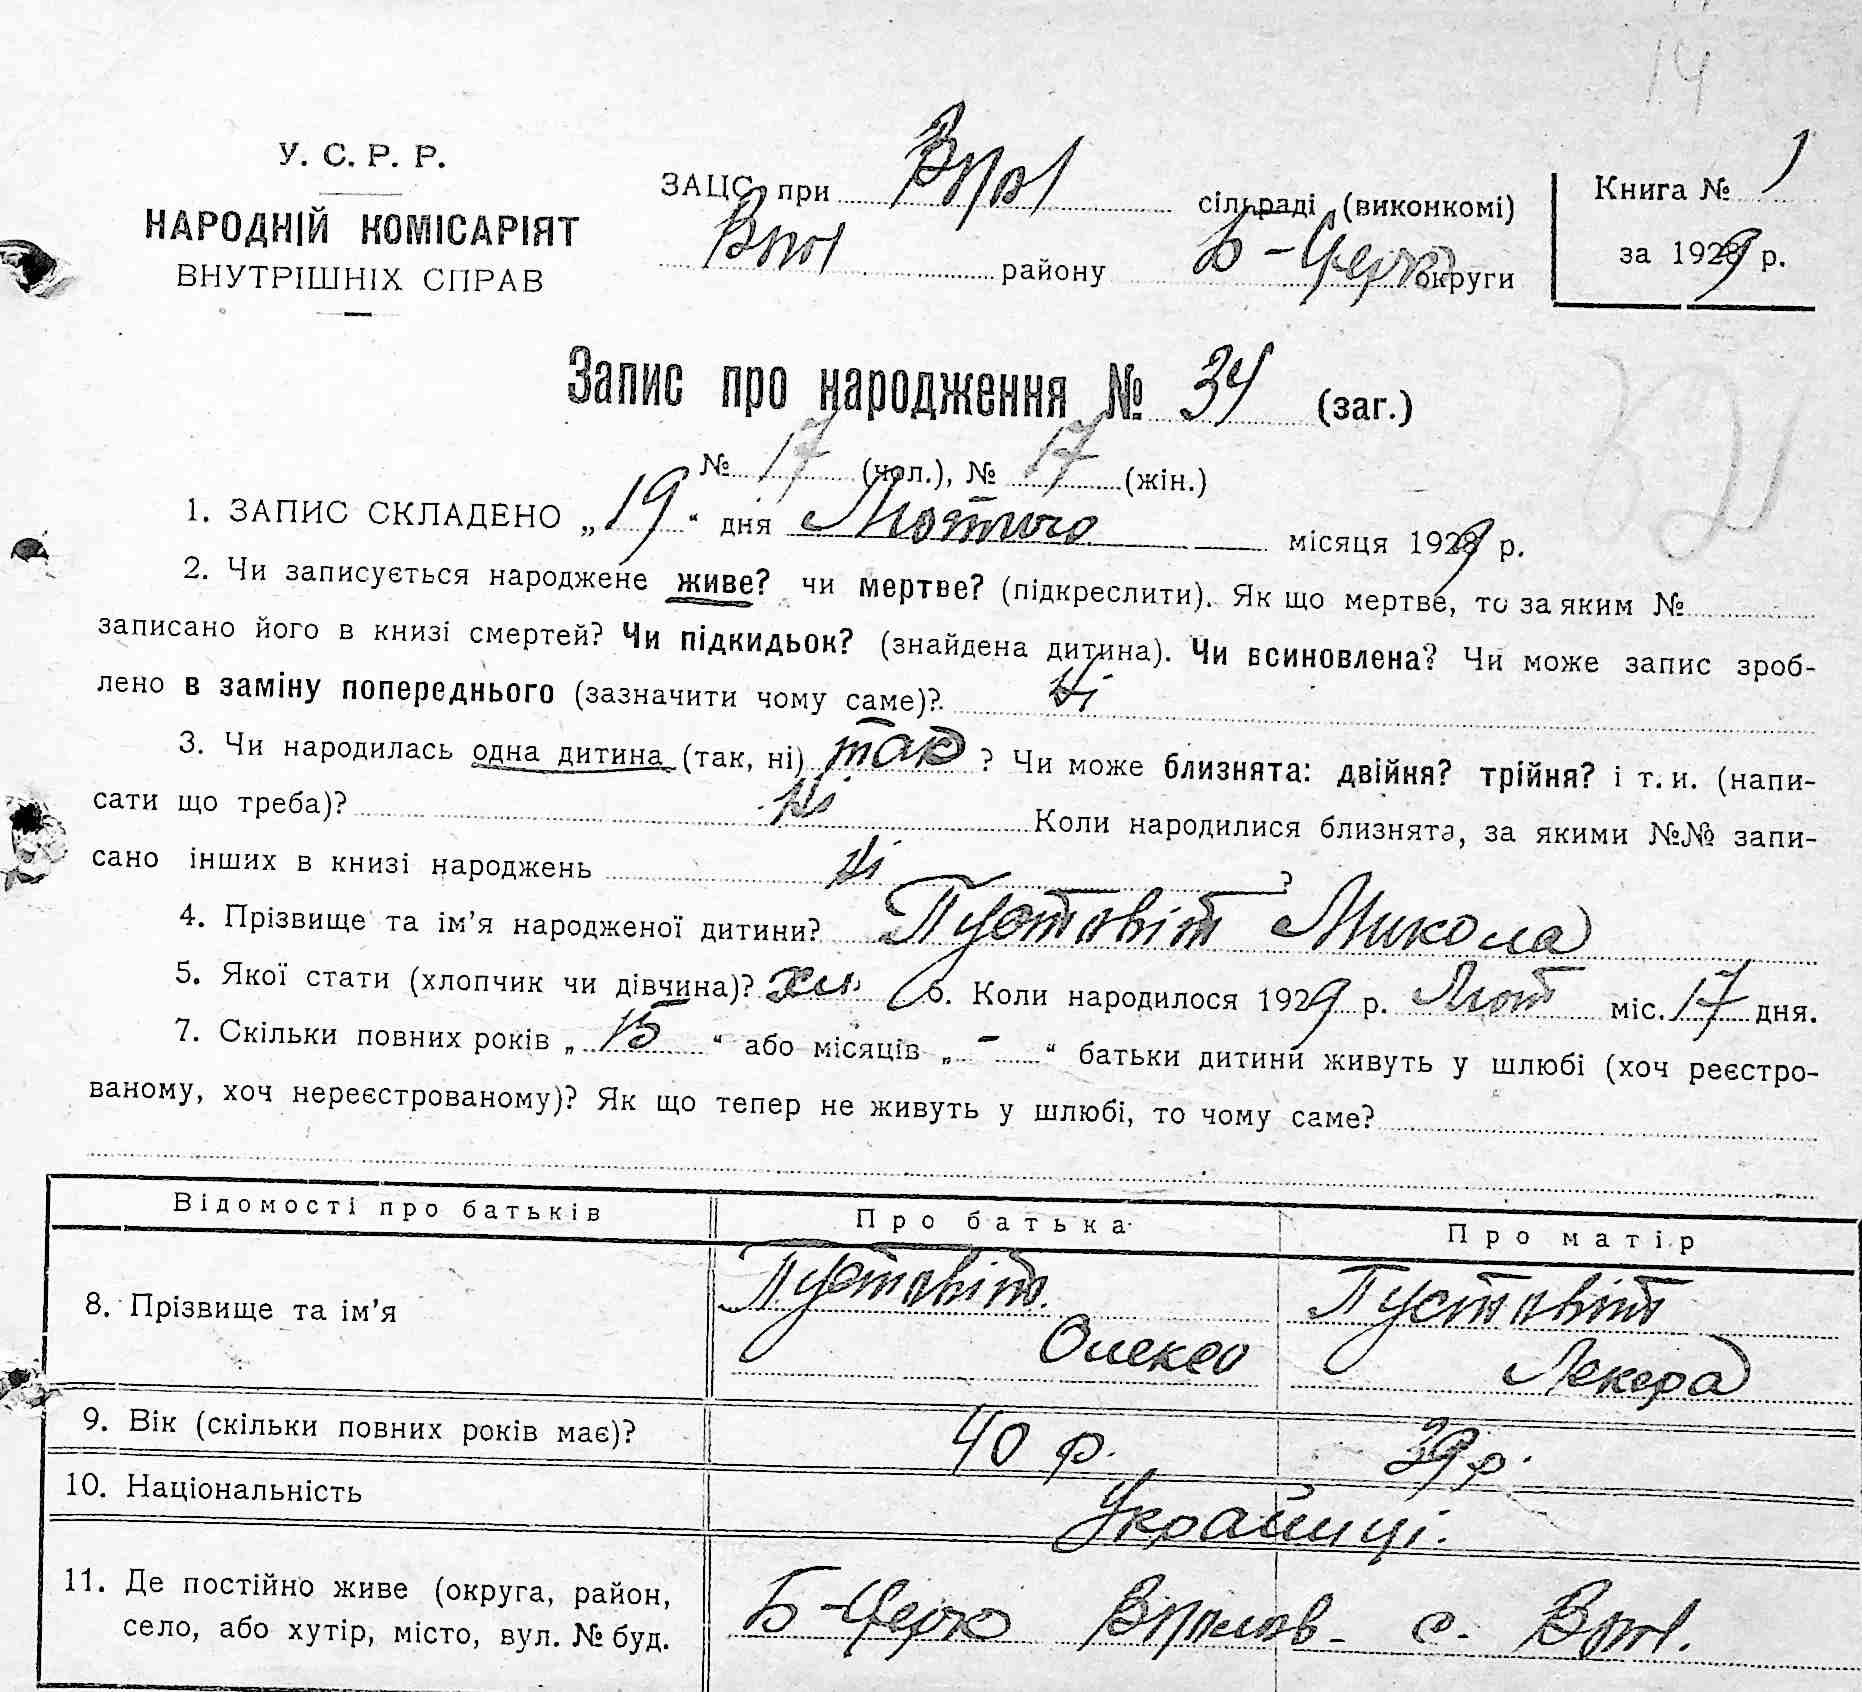 14
У. С. Р. Р.
НАРОДНІЙ КОМІСАРІЯТ
ВНУТРІШНІХ СПРАВ
ЗАЦС при сільраді (виконкомі)
району Б-Церк округи
Книга № 1
за 1929 р.
Запис про народження № 34 (заг.)
№ 17 (чол.), № 17 (жін.)
1. ЗАПИС СКЛАДЕНО „19“ дня Лютого місяця 1929 р.
2. Чи записується народжене живе? чи мертве? (підкреслити). Як що мертве, то за яким №
записано його в книзі смертей? Чи підкидьок? (знайдена дитина). Чи всиновлена? Чи може запис зроб-
лено в заміну попереднього (зазначити чому саме)? Ні
3. Чи народилась одна дитина (так, ні) так ? Чи може близнята: двійня? трійня? і т. и. (напи-
сати що треба)? Ні Коли народилися близнята, за якими №№ запи-
сано інших в книзі народжень Ні ?
4. Прізвище та ім’я народженої дитини? Пустовіт Микола
5. Якої стати (хлопчик чи дівчина)? хл. 6. Коли народилося 1929 р. Лют міс. 17 дня.
7. Скільки повних років „15“ або місяців „-“ батьки дитини живуть у шлюбі (хоч реєстро-
ваному, хоч нереєстрованому)? Як що тепер не живуть у шлюбі, то чому саме?
Відомості про батьків Про батька Про матір
8. Прізвище та ім’я Пустовіт Олексо Пустовіт Лекера
9. Вік (скільки повних років має)? 40 р. 39 р.
10. Національність Українці.
11. Де постійно живе (округа, район, Б-Церк с.
село, або хутір, місто, вул. № буд.